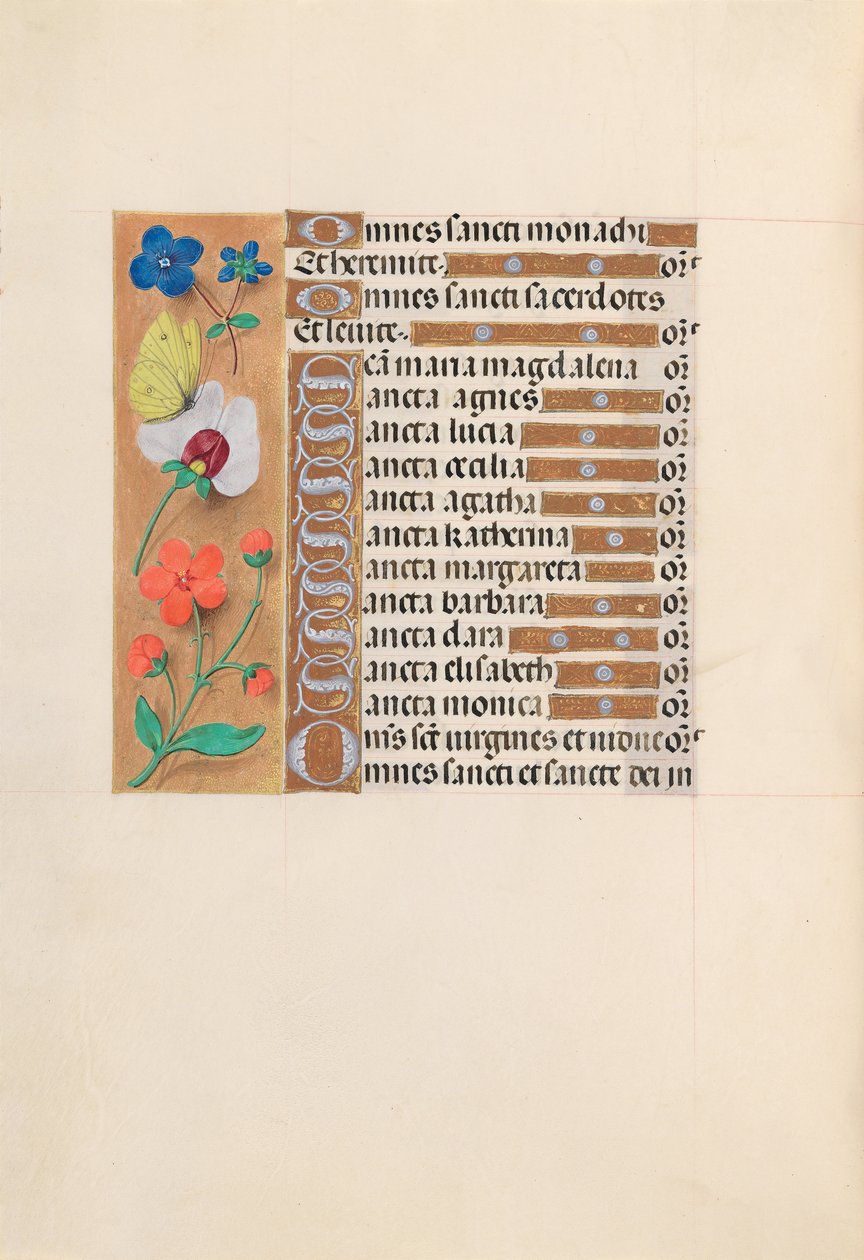 Omnes sancti monachi
Et heremite. orᵗ
Omnes sancti sacerdotes
Et leuite. orᵗ
Scã maria magdalena or̃
Sancta agnes or̃
Sancta lucia or̃
Sancta cecilia or̃
Sancta agatha or̃
Sancta katherina or̃
Sancta margareta or̃
Sancta barbara or̃
Sancta clara or̃
Sancta elisabeth or̃
Sancta monica or̃
Om̃s sct̃ uirgines et uidue orᵗ
Omnes sancti et sancte dei in